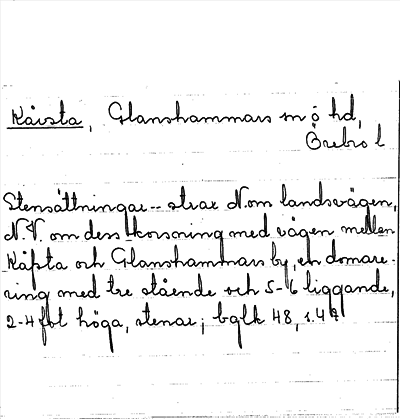 Kåvsta, Glanshammars sn o hd,
Örebro l
Stensättningar -- strax N.om landsvägen,
N.V. om dess korsning med vägen mellan
Kåfsta och Glanshammars by, en domare-
ring med tre stående och 5-6 liggande,
2-4 fot höga, stenar; bglk 48, s.4